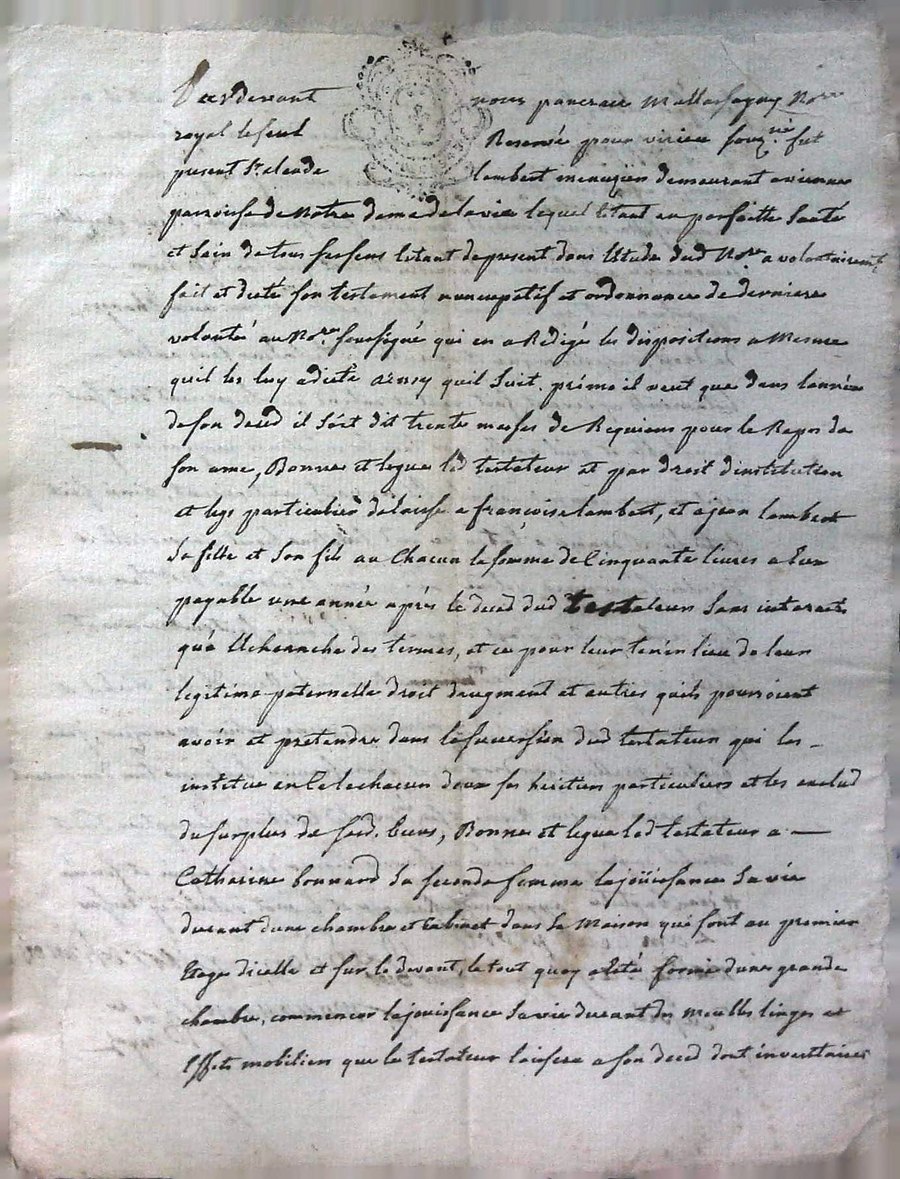 Pardevant nous pancrace Mallassagny Nore
royal le seul Reservé pour virieu souz.né fut
present Sr claude lambert menuizier demeurant a vienne
parroisse de Notre dame de la vie lequel Etant en parfaitte Santé
et Sain de tous ses sens Etant de present dans l'Etude dud Nore a volontairemt
fait et dicté son testament nuncupatif et ordonnance de derniere
volonté au Nore soussigné qui en a Redigé les dispositions a Mesure
quil les luy a dicté ainsy quil Suit. primo il veut que dans lannée
de son deced il Soit dit trente messes de Requiem pour le Repos de
son ame, Donne et legue led testateur et par droit d'institution
et legs particulier delaisse a françoise lambert, et a jean lambert
Sa fille et Son fils au chacun la somme de Cinquante livres a Eux
payable une année après le deced dud testateur Sans interests
qu'a l'Echeance des termes, et ce pour leur tenir lieu de leur
legitime paternelle droit daugment et autres quils pourroient
avoir et pretendre dans la succession dud testateur qui les
institue en Cela chacun deux ses heritiers particuliers et les exclud
du surplus de sesd. biens, Donne et legue led testateur a
Catherine bonnard Sa seconde femme la joüissance Sa vie
durant dune chambre et Cabinet dans Sa Maison qui sont au premier
Etage dicelle et sur le devant, le tout quoy a été formé dune grande
chambre, comme la jouissance Sa vie durant des meubles linges et
Effets mobiliers que le testateur laissera a son deced dont inventaire